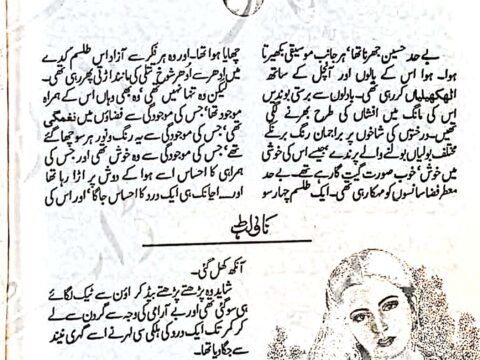 بے حد حسین جھرنا تھا‘ ہر جانب موسیقی بکھیرتا
ہوا۔ ہوا اس کے بالوں اور آنچل کے ساتھ
اٹھکھیلیاں کر رہی تھی۔ بادلوں سے برستی بوندیں
اس کی مانگ میں افشاں کی طرح بھرنے لگی
تھیں۔ درختوں کی شاخوں پر براجمان رنگ برنگے
مختلف بولیاں بولنے والے پرندے جیسے اس کی خوشی
میں خوش‘ خوب صورت گیت گا رہے تھے۔ بے حد
معطر فضا سانسوں کو مہکا رہی تھی۔ ایک طلسم چار سو
چھایا ہوا تھا۔ اور وہ ہر فکر سے آزاد اس طلسم کدے
میں ادھر سے ادھر شوخ تتلی کی مانند اڑتی پھر رہی تھی۔
لیکن وہ تنہا نہیں تھی‘ وہ بھی وہاں اس کے ہمراہ
موجود تھا‘ جس کی موجودگی سے فضاؤں میں نغمگی
تھی‘ جس کی موجودگی سے یہ رنگ و نور ہر سو چھا گئے
تھے‘ جس کی موجودگی سے وہ خوش تھی اور جس کی
ہمراہی کا احساس اسے ہوا کے دوش پر اڑا رہا تھا
اور۔۔ اچانک ہی ایک درد کا احساس جاگا‘ اور اس کی
ناولٹ
آنکھ کھل گئی۔
شاید وہ پڑھتے پڑھتے بیڈ کراؤن سے ٹیک لگائے
ہی سو گئی تھی اور بے آرامی کی وجہ سے گردن سے لے
کر کمر تک ایک درد کی ہلکی سی لہر نے اسے گہری نیند
سے جگا دیا تھا۔